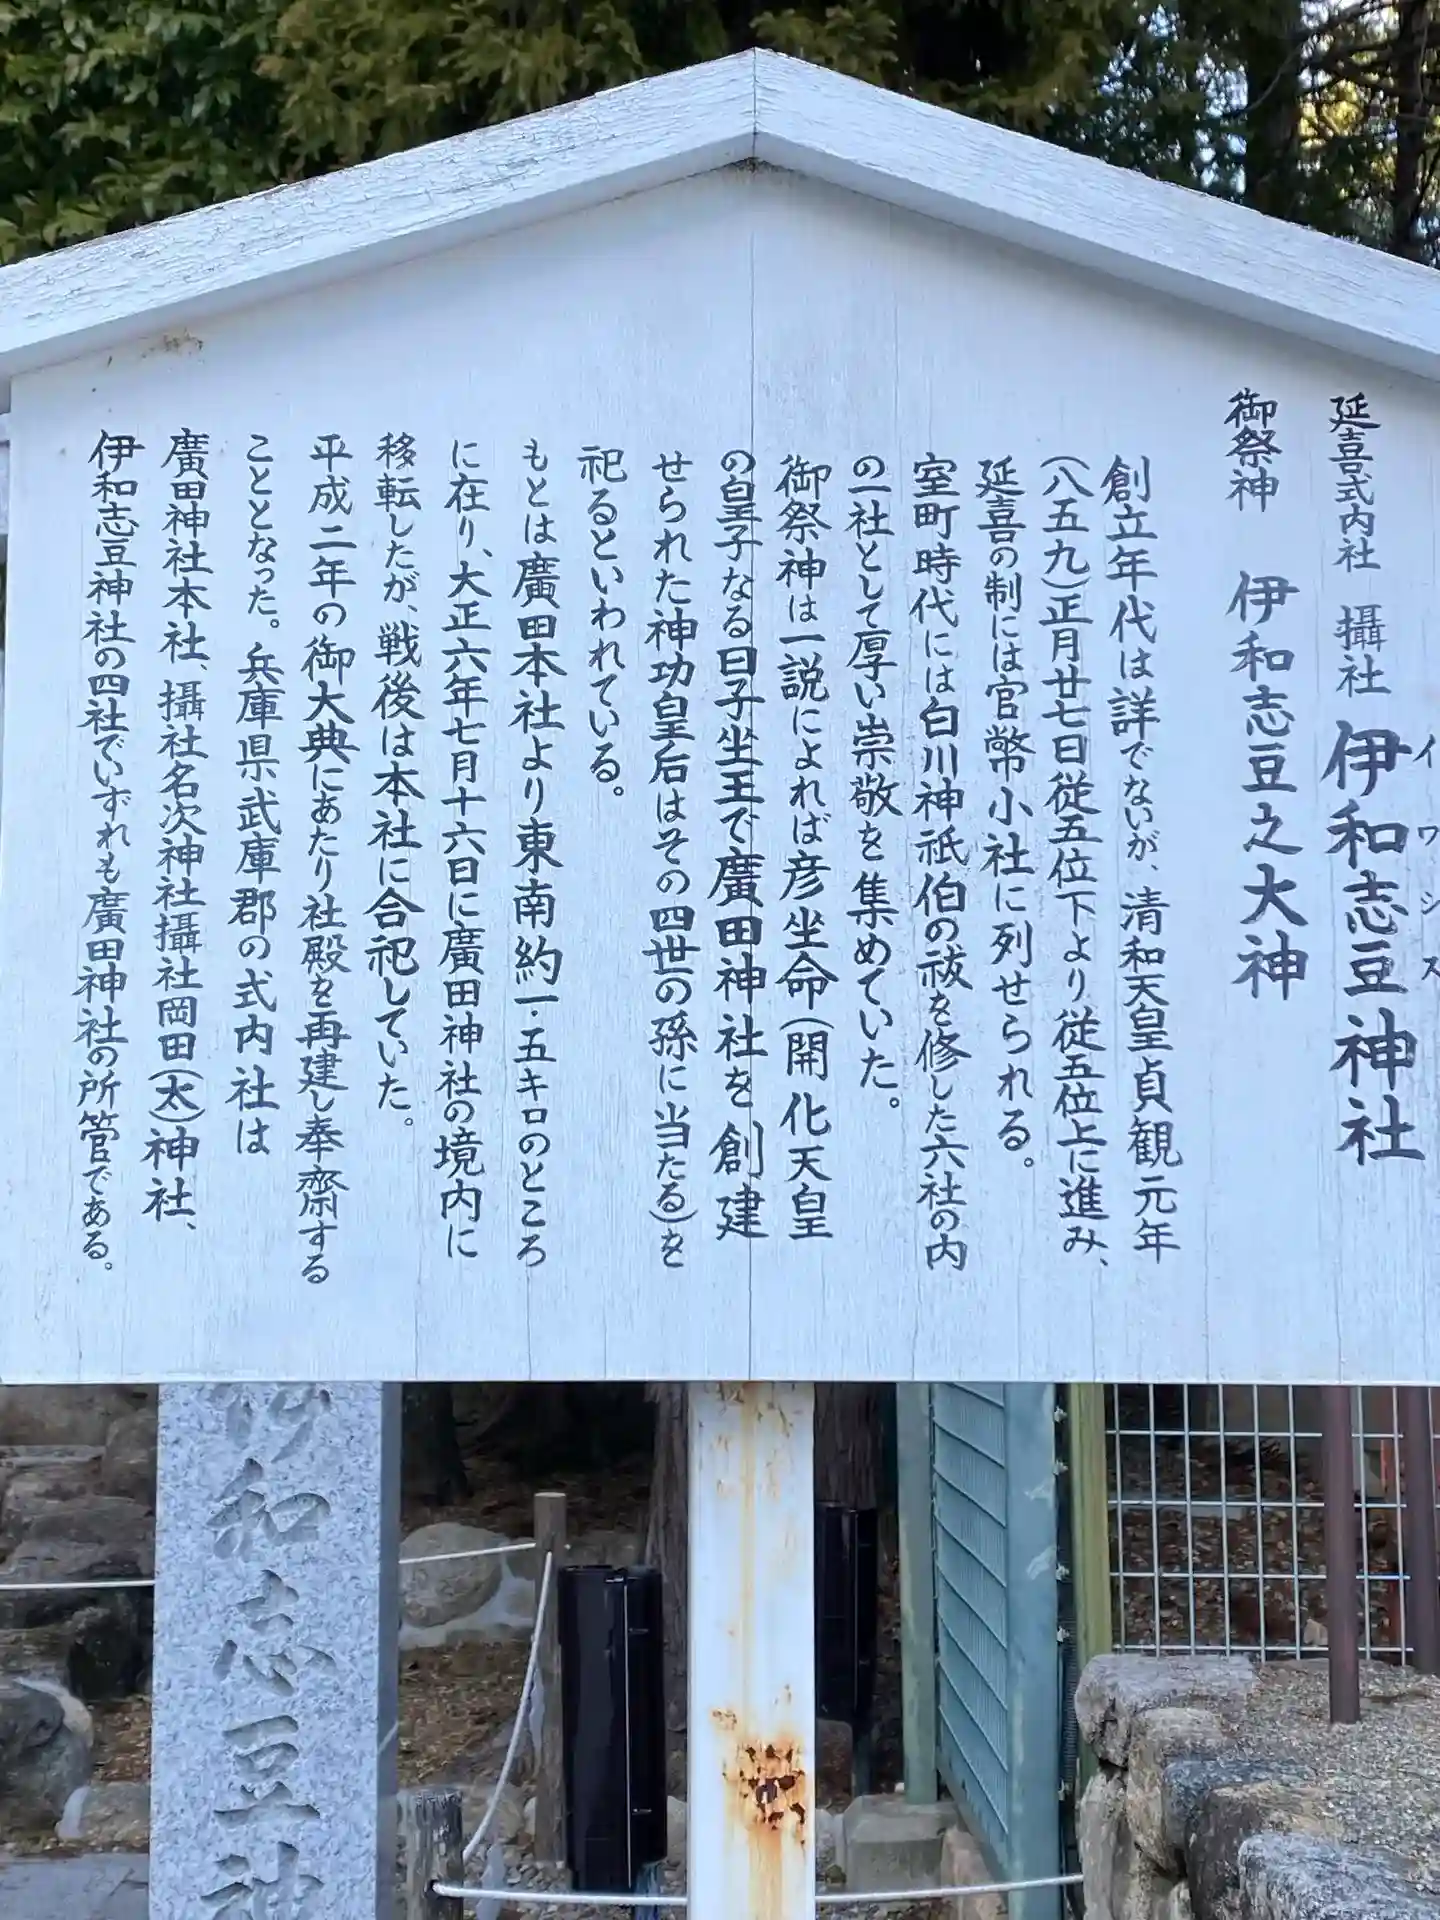 延喜式内社 攝社 伊和志豆神社
イワシズ
御祭神 伊和志豆之大神
創立年代は詳でないが、清和天皇貞観元年
(八五九)正月廿七日従五位下より従五位上に進み、
延喜の制には官幣小社に列せられる。
室町時代には白川神祇伯の祓を修した六社の内
の一社として厚い崇敬を集めていた。
御祭神は一説によれば彦坐命(開化天皇
の皇子なる日子坐王で廣田神社を創建
せられた神功皇后はその四世の孫に当たる)を
祀るといわれている。
もとは廣田本社より東南約一・五キロのところ
に在り、大正六年七月十六日に廣田神社の境内に
移転したが、戦後は本社に合祀していた。
平成二年の御大典にあたり社殿を再建し奉齋する
こととなった。兵庫県武庫郡の式内社は
廣田神社本社、攝社名次神社攝社岡田(太)神社、
伊和志豆神社の四社でいずれも廣田神社の所管である。
和志豆神